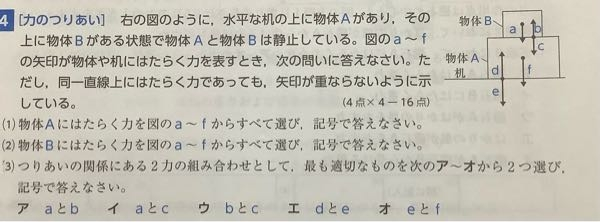 4 [力のつりあい] 右の図のように，水平な机の上に物体Aがあり，その
上に物体Bがある状態で物体Aと物体Bは静止している。図のa～f
の矢印が物体や机にはたらく力を表すとき，次の問いに答えなさい。た
だし，同一直線上にはたらく力であっても，矢印が重ならないように示
している。 (4点×4－16点)
物体B
a
b
c
物体A
机
d
e
f
(1) 物体Aにはたらく力を図のa～fからすべて選び，記号で答えなさい。
(2) 物体Bにはたらく力を図のa～fからすべて選び，記号で答えなさい。
(3) つりあいの関係にある2力の組み合わせとして，最も適切なものを次のア～オから2つ選び，
記号で答えなさい。
ア aとb イ aとc ウ bとc エ dとe オ eとf